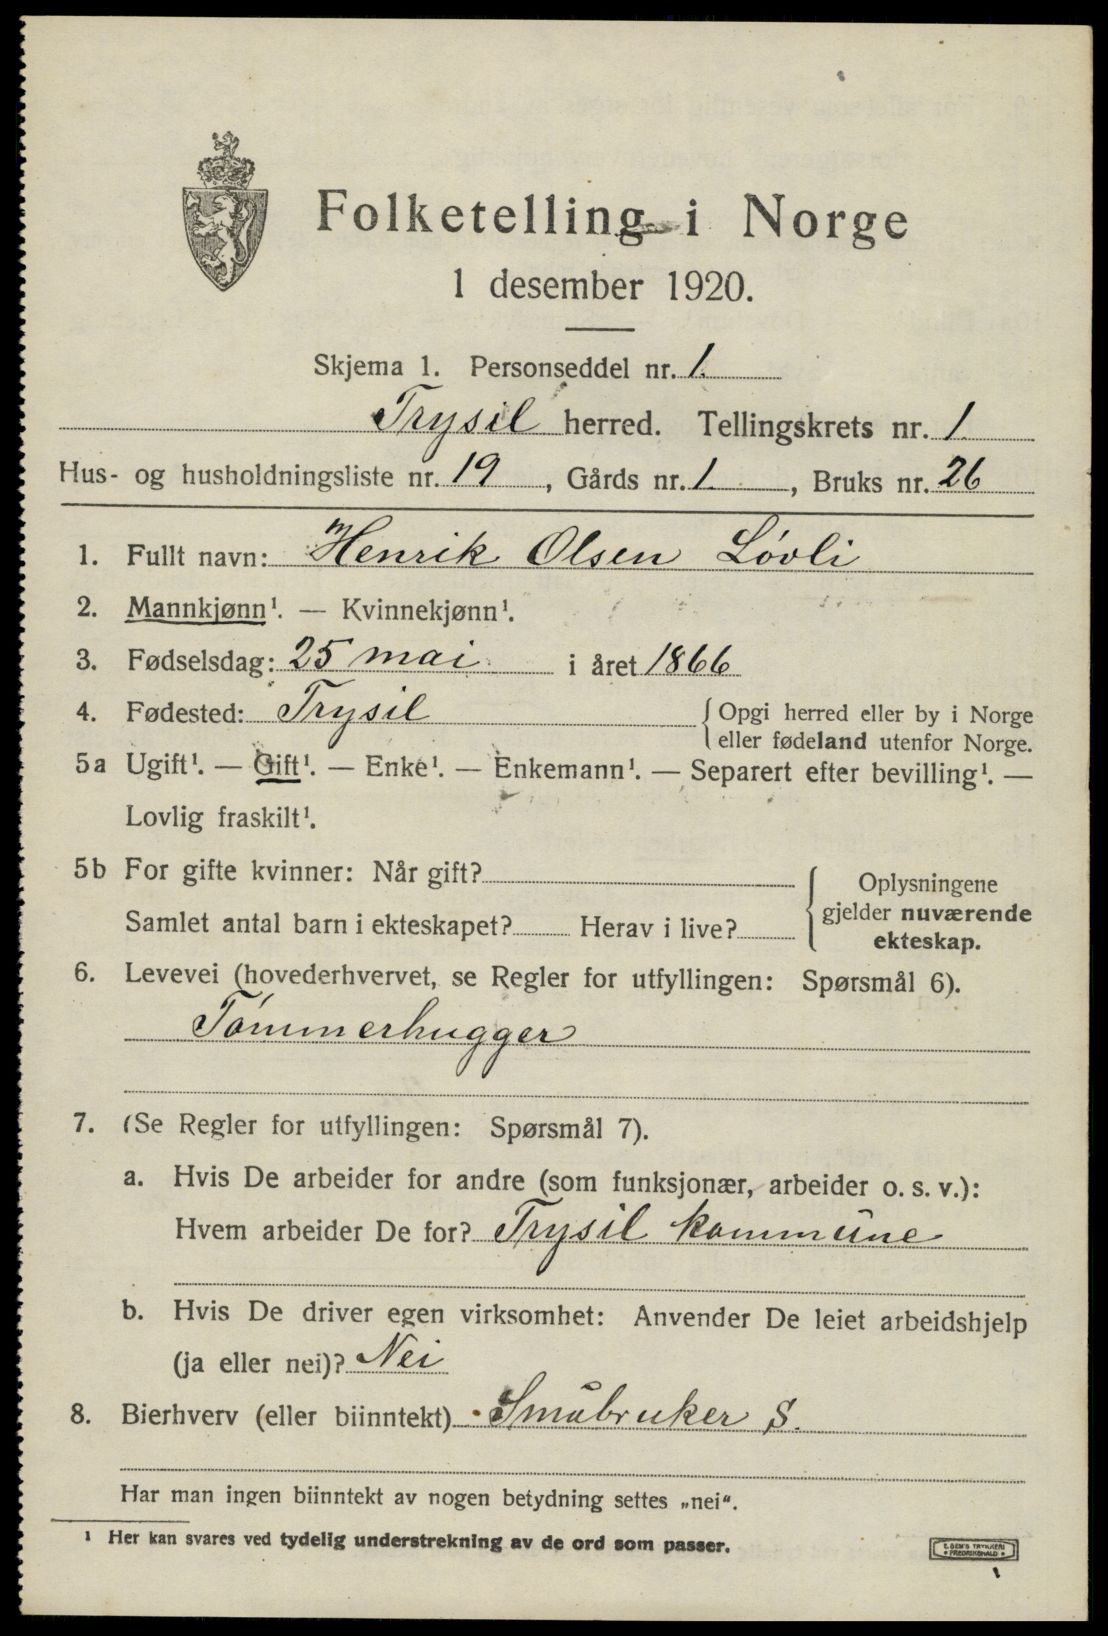 Folketelling i Norge
1 desember 1920.
Skjema 1. Personseddel nr. 1.
Trysil herred. Tellingskrets nr. 1.
Hus- og husholdningsliste nr. 19, Gårds nr. 1., Bruks nr. 26
1. Fullt navn: Henrik Olsen Løvli
2. Mannkjønn¹. — Kvinnekjønn¹.
3. Fødselsdag: 25 mai i året 1866
4. Fødested: Trysil {Opgi herred eller by i Norge
eller fødeland utenfor Norge.
5a Ugift¹. — Gift¹. — Enke¹. — Enkemann¹. — Separert efter bevilling¹. —
Lovlig fraskilt¹.
5b For gifte kvinner: Når gift?
Samlet antal barn i ekteskapet? Herav i live?
{Oplysningene
gjelder nuværende
ekteskap.
6. Levevei (hovederhvervet, se Regler for utfyllingen: Spørsmål 6).
Tømmerhugger
7. (Se Regler for utfyllingen: Spørsmål 7).
a. Hvis De arbeider for andre (som funksjonær, arbeider o. s. v.):
Hvem arbeider De for? Trysil kommune
b. Hvis De driver egen virksomhet: Anvender De leiet arbeidshjelp
(ja eller nei)? Nei
8. Bierhverv (eller biinntekt) Småbruker S.
Har man ingen biinntekt av nogen betydning settes „nei“.
¹ Her kan svares ved tydelig understrekning av de ord som passer.
E. SEM'S TRYKKERI
• FREDRIKSHALD •